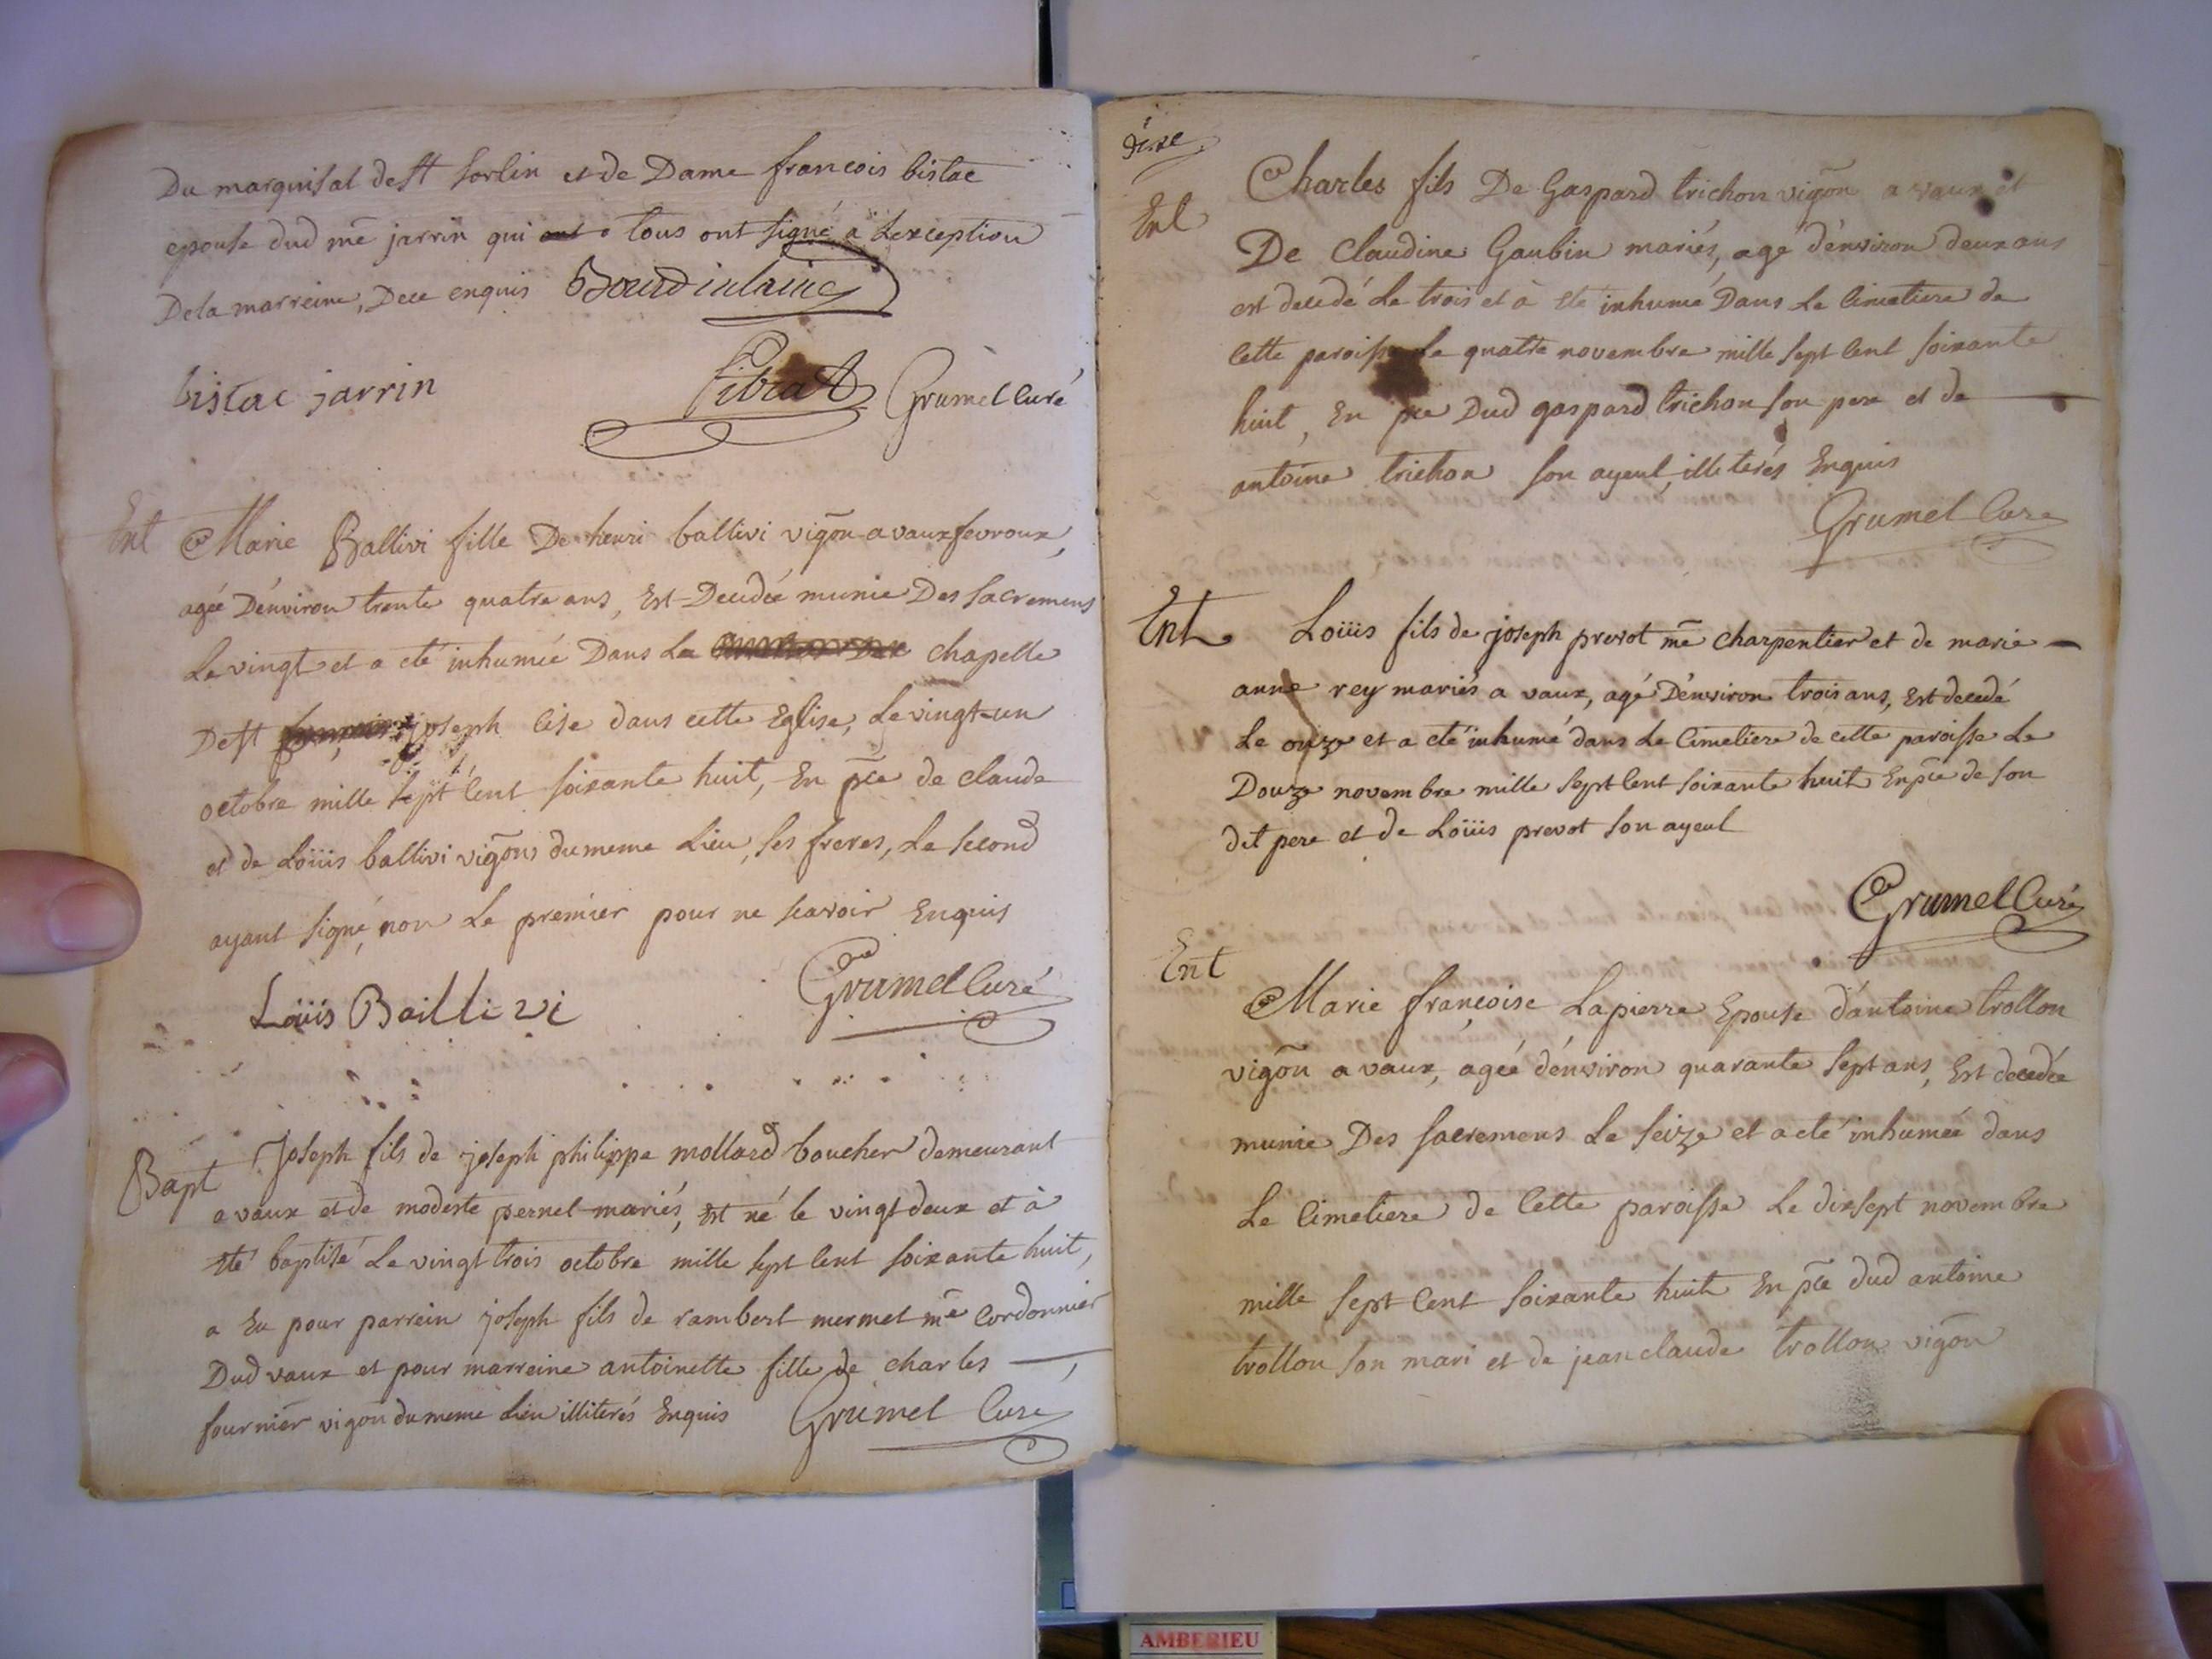 Du marquisat de st Sorlin et de Dame francois bistac
epouse dud me jarrin qui tous ont signé a l'exception
De la marreine, De ce enquis
bistac jarrin
Grumel Curé
Ent
Marie Ballivi fille De henri ballivi vigon a vaux fevroux,
agée D'environ trente quatre ans, Est Decedée munie Des Sacremens
Le vingt et a eté inhumée Dans La chapelle
De st joseph cise dans cette Eglise, Le vingt-un
octobre mille sept Cent soixante huit, En pce de claude
et de Loüis ballivi vigons du meme Lieu, ses freres, Le second
ayant signé, non Le premier pour ne scavoir Enquis
Loüis Baillivi
Grumel Curé
Bapt
Joseph fils de joseph philippe mollard boucher demeurant
a vaux et de modeste pernet mariés, Est né le vingt deux et à
Eté baptisé Le vingt trois octobre mille sept Cent soixante huit,
a Eu pour parrein joseph fils de rambert mermet me Cordonnier
Dud vaux et pour marreine antoinette fille de charles
fournier vigon du meme Lieu illiterés Enquis
Grumel Cure
dixe
Ent
Charles fils De Gaspard trichon vigon a vaux et
De Claudine Gaubin mariés, agé d'environ deux ans
est decedé Le trois et à Eté inhumé Dans Le Cimetiere de
Cette paroisse Le quatre novembre mille sept Cent soixante
huit, En pce Dud gaspard trichon son pere et de
antoine trichon son ayeul, illiterés Enquis
Grumel Cure
Ent
Loüis fils de joseph prevot me charpentier et de marie
anne rey mariés a vaux, agé D'environ trois ans, Est decedé
Le onze et a eté inhumé dans Le Cimetiere de cette paroisse Le
Douze novembre mille sept Cent soixante huit En pce de son
dit pere et de Loüis prevot son ayeul
Grumel Curé
Ent
Marie françoise Lapierre Epouse d'antoine trollon
vigon a vaux, agée d'environ quarante sept ans, Est decedée
munie Des sacremens Le seize et a eté inhumée dans
Le Cimetiere de Cette paroisse Le dixsept novembre
mille sept Cent soixante huit En pce dud antoine
trollon son mari et de jean claude trollon vigon
AMBERIEU